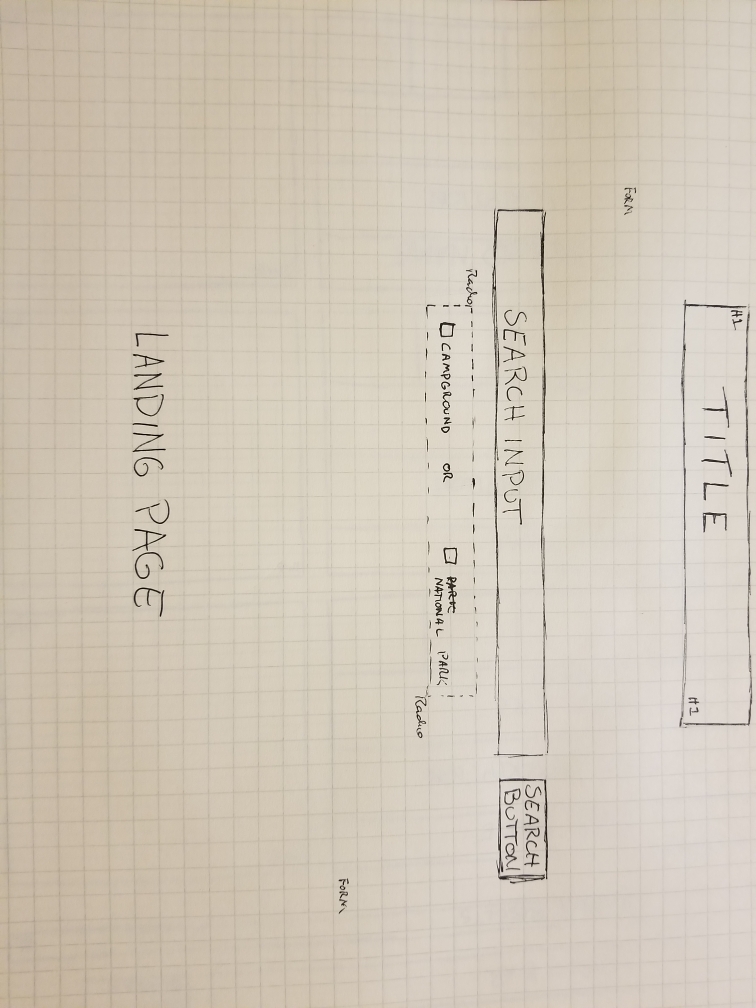 H1
TITLE
H1
FORM
SEARCH INPUT
SEARCH
BUTTON
Radio
CAMPGROUND OR PARK
NATIONAL PARK
Radio
FORM
LANDING PAGE